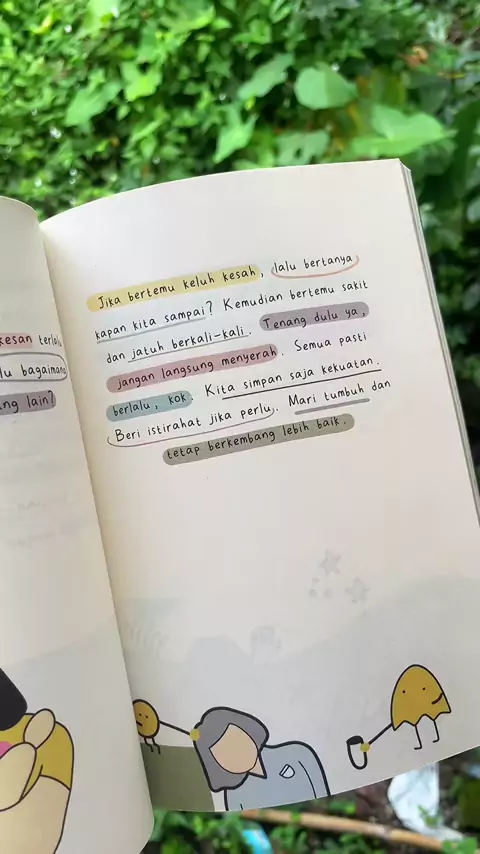 kesan
lu bagaimana
ng lain?
Jika bertemu keluh kesah, lalu bertanya
kapan kita sampai? Kemudian bertemu sakit
dan jatuh berkali-kali. Tenang dulu ya,
jangan langsung menyerah. Semua pasti
berlalu, kok. Kita simpan saja kekuatan.
Beri istirahat jika perlu. Mari tumbuh dan
tetap berkembang lebih baik.